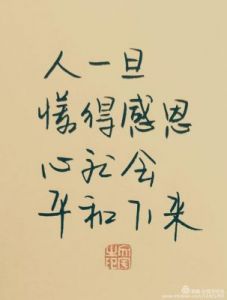 人一旦
懂得感恩
心就会
平和下来